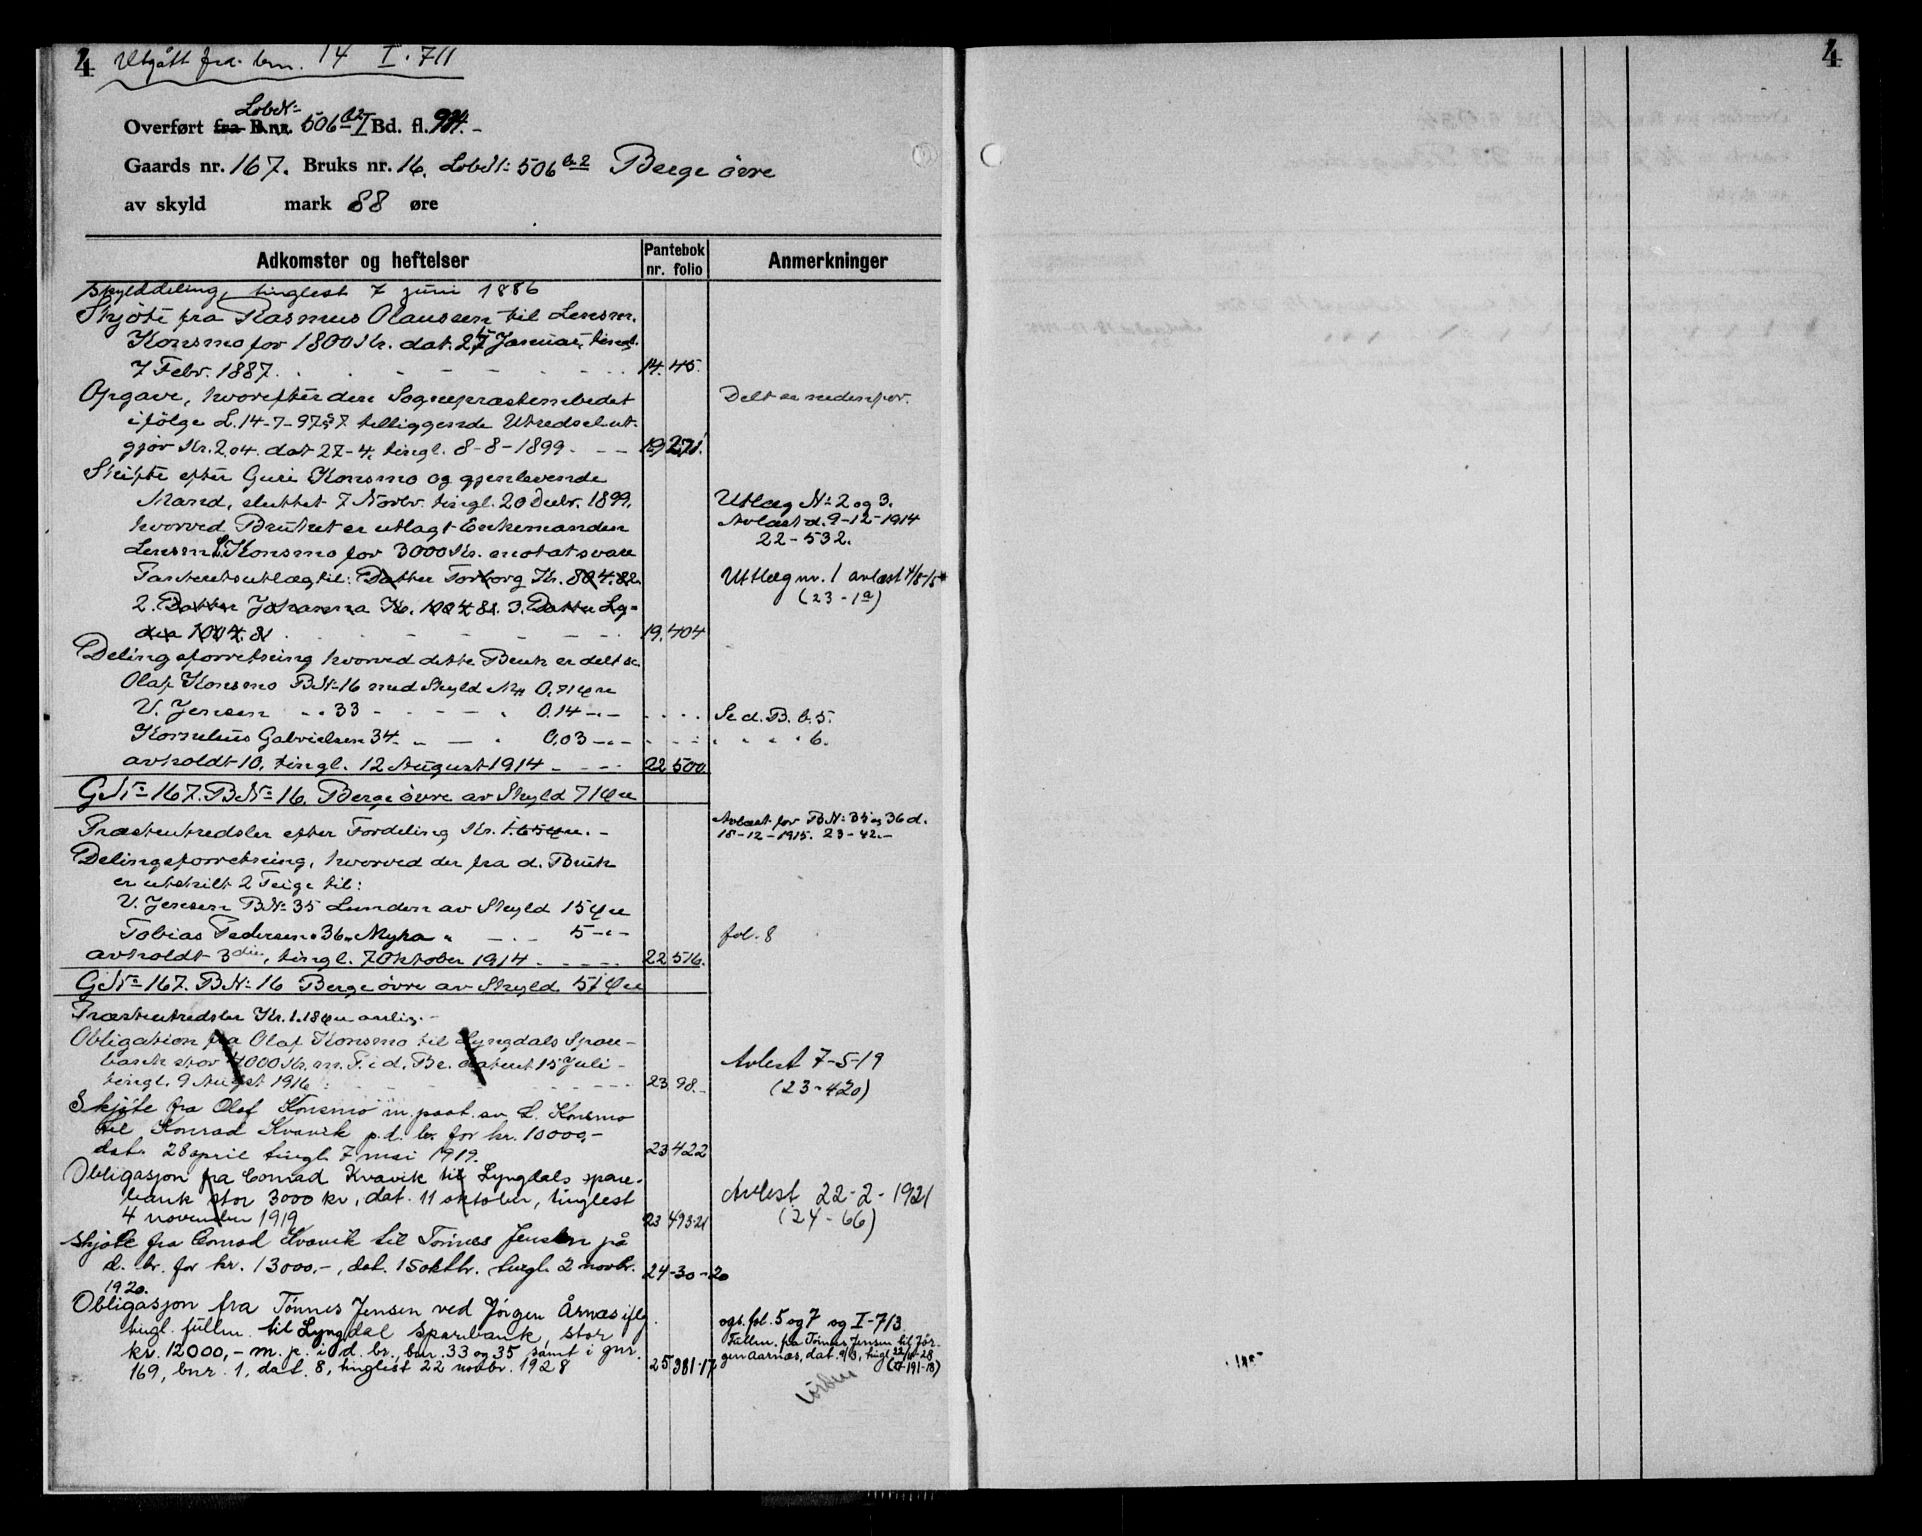 4
Utgått fra bnr. 14 I. 711
4
LobeN:
Overført fra B.nr. 506 b2 I Bd. fl. 934.-
Gaards nr. 167. Bruks nr. 16. LobeN: 506 b2 Berge övre
av skyld mark 88 øre
Adkomster og heftelser
Pantebok
nr. folio
Anmerkninger
Skylddeling, tinglest 7 juni 1886
Skjöte fra Rasmus Olaussen til Lensm.
Konsmo for 1800 Kr. dat. 27 Januar, tingl.
7 Febr. 1887. 14. 45.
Opgave, hvorefter den Sognepræstembedet Delt se nedenfor.
ifölge L. 14-7-97 § 7 tilliggende Utredsel ut-
gjör Kr. 2,04. dat 27-4, tingl. 8-8-1899. 19 271.
Skifte efter Guri Konsmo og gjenlevende
Mand, sluttet 7 Novbr. tingl. 20 Decbr. 1899, Utlæg N: 2 og 3.
hvorved Bruket er utlagt Enkemanden Avlæst d. 9-12-1914
Lensm L. Konsmo for 3000 Kr. mot at svare 22-532.
Panteretsutlæg til: Datter Torborg Kr. 804.82. Utlæg nr. 1 avlæst
2. Datter Johanna Kr. 1004 81. 3. Datter Ly- (23-1a)
dia 1004. 81 19. 404
Delingsforretning hvorved dette Bruk er delt
Olaf Konsmo BN:16 med Skyld Mk 0,71 öre
V. Jensen " " 33 - - - - " 0,14 -"- Se d. B. b. 5.
Kornelius Gabrielsen 34 - " - " 0,03 -"- " " " " 6.
avholdt 10, tingl. 12 August 1914 22 500
GN: 167. BN: 16. Berge övre av Skyld 71 öre
Præsteutredsler efter Fordeling Kr. 1.65 öre. - Avlæst for BN: 35 og 36 d.
18-12-1915. 23-42.-
Delingsforretning, hvorved der fra d. Bruk
er utskilt 2 Teige til:
V. Jensen BN: 35 Lunden av Skyld 15 öre
Tobias Pedersen " 36 " Myra " - " - 5 -"- fol. 8
avholdt 3die, tingl. 7 Oktober 1914 22 516.
GN: 167. BN: 16 Berge övre av Skyld 51 öre
Præsteutredsler Kr. 1.18 öre aarlig. -
Obligation fra Olaf Konsmo til Lyngdals Spare-
bank stor 4000 Kr. m. P. i d. Br. datert 15 Juli - Avlest 7-5-19
tingl. 9 August 1916 23 98.- (23-420)
Skjöte fra Olaf Konsmo m. paat. av L. Konsmo
til Konrad Kvavik p. d. br. for kr. 10000,-
dat. 28 april tingl. 7 mai 1919. 23 422
Obligasjon fra Conrad Kvavik til Lyngdals spare-
bank stor 3000 kr, dat. 11 oktober, tinglest Avlest 22-2-1921
4 november 1919 23 493-21 (24-66)
Skjöte fra Conrad Kvavik til Tönnes Jensen på
d. br. for kr. 13000,-, dat. 15 oktbr. tingl. 2 novbr. 24-30-20
1920.
Obligasjon fra Tönnes Jensen ved Jörgen Årnæs iflg.
tingl. fullm. til Lyngdal sparebank, stor ogs. fol. 5 og 7 og I-713
kr. 12000,- m. p. i d. br., bnr. 33 og 35 samt i gnr. Fullm. fra Tönnes Jensen til Jör-
169, bnr. 1, dat. 8, tinglest 22 novbr. 1928 25 381-17 gen Aarnæs, dat. 9/3, tingl.